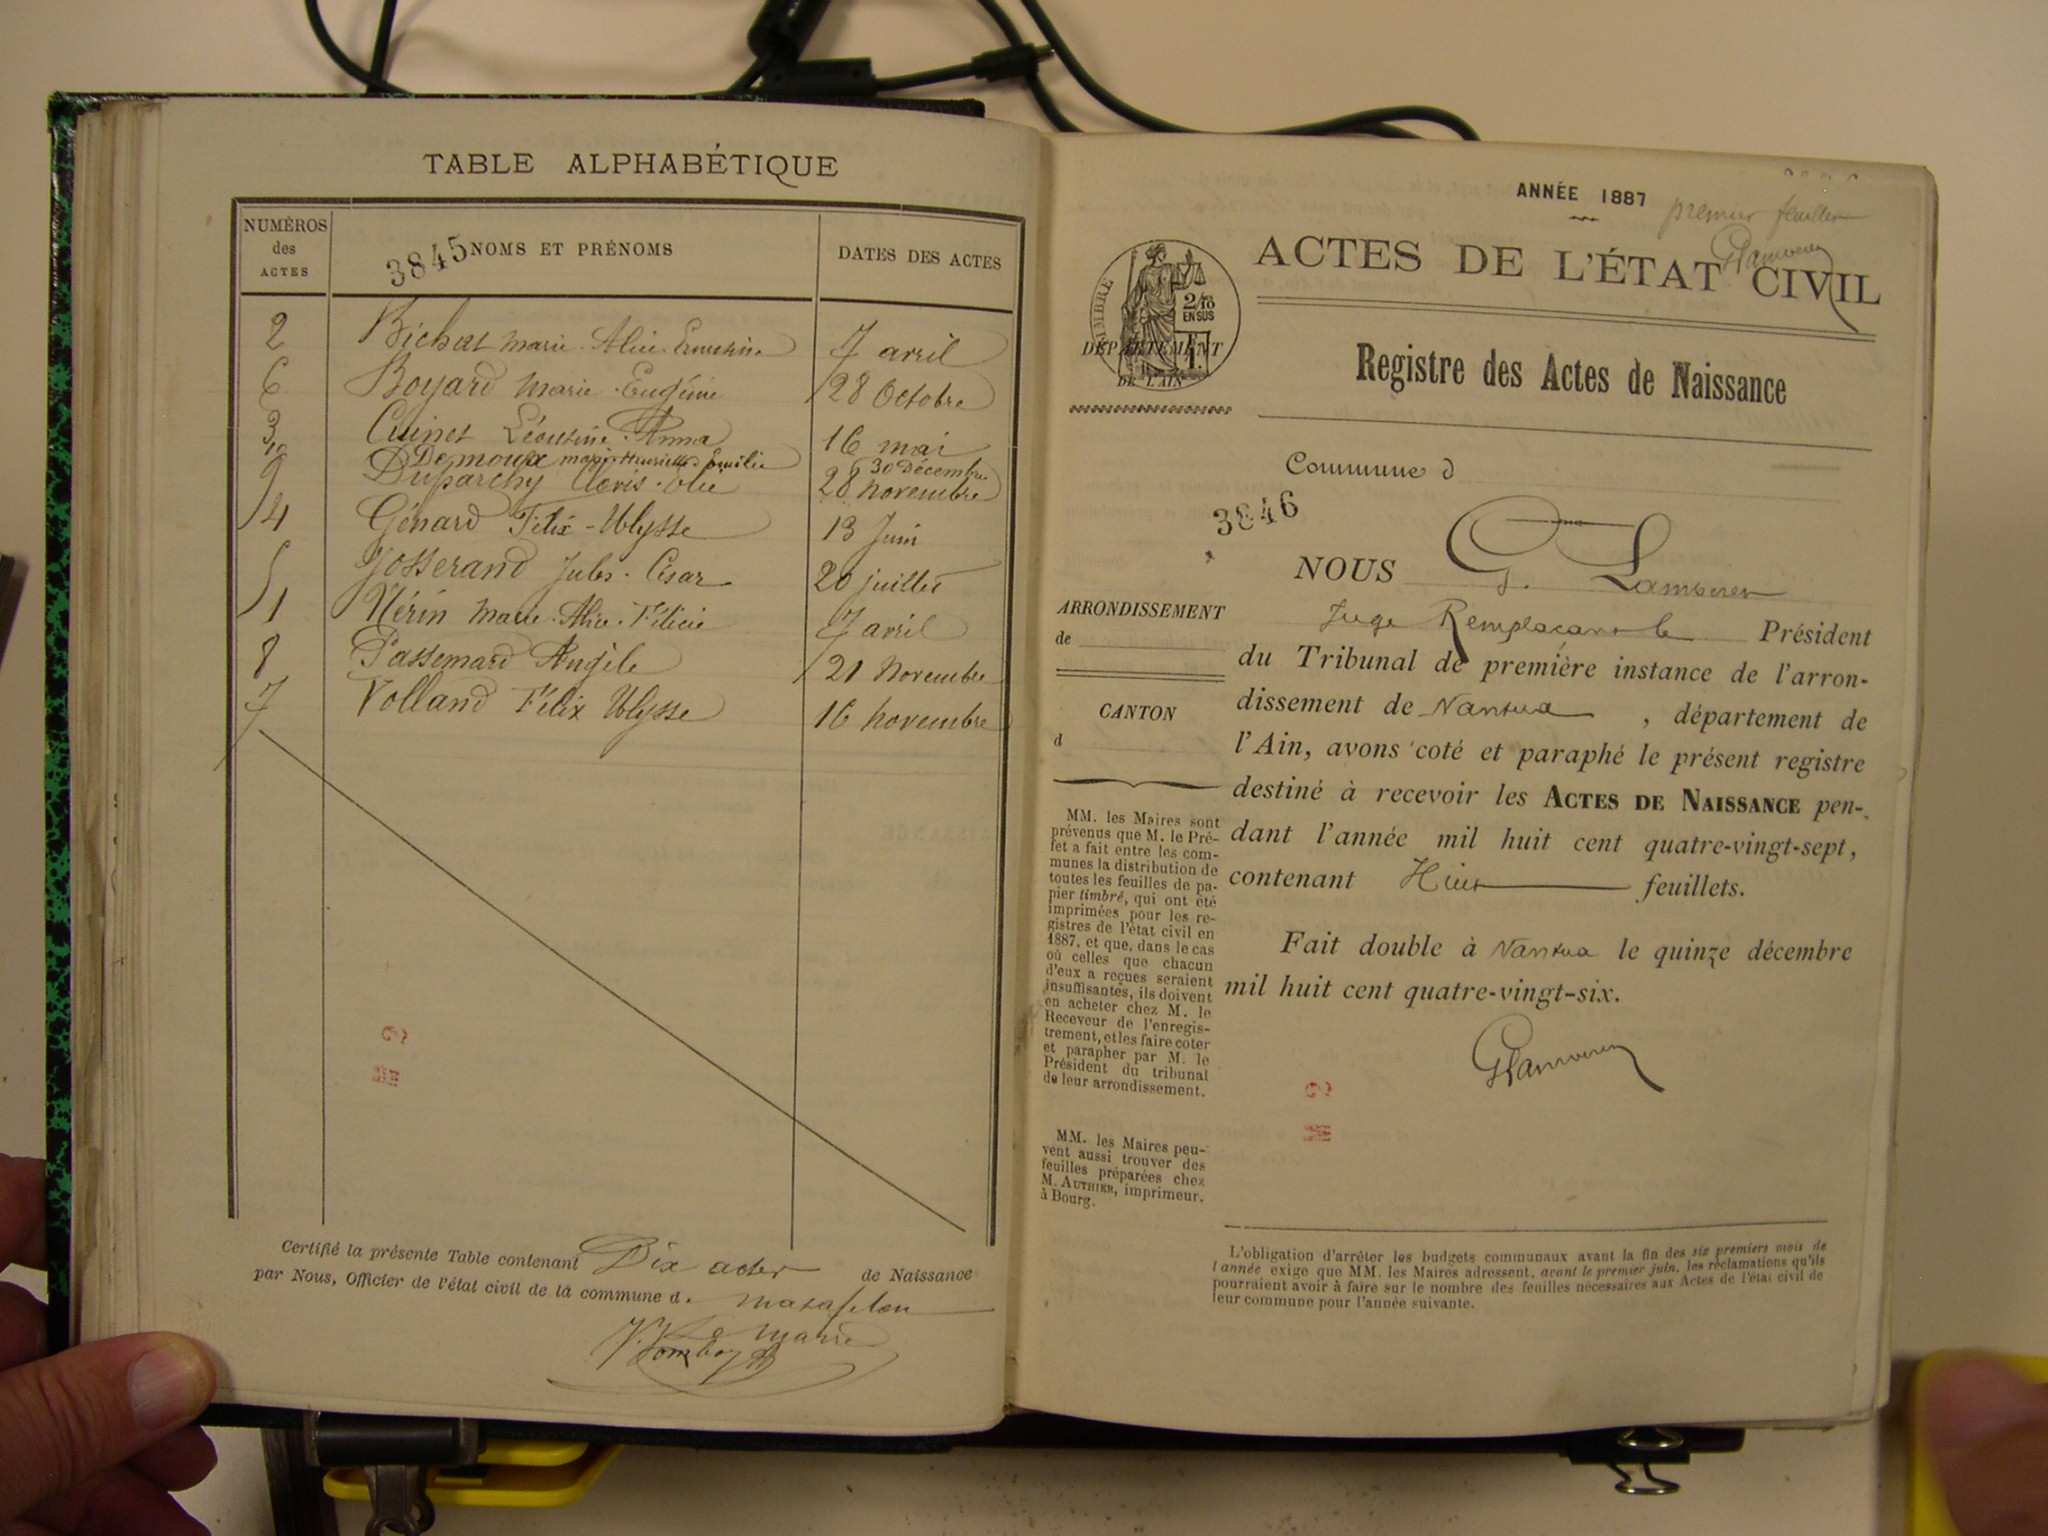 TABLE ALPHABÉTIQUE
NUMÉROS
des
ACTES
3845
NOMS ET PRÉNOMS
DATES DES ACTES
2 Bichat Marie Alice Erneszine 7 avril
6 Boyard Marie Eugénie 28 Octobre
3 Cuinet Léontine Anna 16 mai
10 Demoux Marie Henriette Emilie 30 Décembre
9 Duparchy Clovis 28 Novembre
4 Génard Félix-Ulysse 13 Juin
5 Josserand Jules César 20 juillet
1 Nérin Marie Alice Félicie 7 avril
8 Passemard Angèle 21 Novembre
7 Volland Félix Ulysse 16 Novembre
Certifié la présente Table contenant Dix actes de Naissance
par Nous, Officier de l'état civil de la commune d.
Le Maire
ANNÉE 1887
premier feuillet
ACTES DE L'ÉTAT CIVIL
TIMBRE
2/10
EN SUS
DÉPARTEMENT
DE L'AIN
Registre des Actes de Naissance
Commune d
3846
NOUS G.
Juge Remplaçant le Président
du Tribunal de première instance de l'arron-
dissement de Nantua, département de
l'Ain, avons coté et paraphé le présent registre
destiné à recevoir les ACTES DE NAISSANCE pen-
dant l'année mil huit cent quatre-vingt-sept,
contenant Huit feuillets.
Fait double à Nantua le quinze décembre
mil huit cent quatre-vingt-six.
ARRONDISSEMENT
de
CANTON
d
MM. les Maires sont
prévenus que M. le Pré-
fet a fait entre les com-
munes la distribution de
toutes les feuilles de pa-
pier timbré, qui ont été
imprimées pour les re-
gistres de l'état civil en
1887, et que, dans le cas
où celles que chacun
d'eux a reçues seraient
insuffisantes, ils doivent
en acheter chez M. le
Receveur de l'enregis-
trement, et les faire coter
et parapher par M. le
Président du tribunal
de leur arrondissement.
MM. les Maires peu-
vent aussi trouver des
feuilles préparées chez
M. AUTHIER, imprimeur,
à Bourg.
L'obligation d'arrêter les budgets communaux avant la fin des six premiers mois de
l'année exige que MM. les Maires adressent, avant le premier juin, les réclamations qu'ils
pourraient avoir à faire sur le nombre des feuilles nécessaires aux Actes de l'état civil de
leur commune pour l'année suivante.